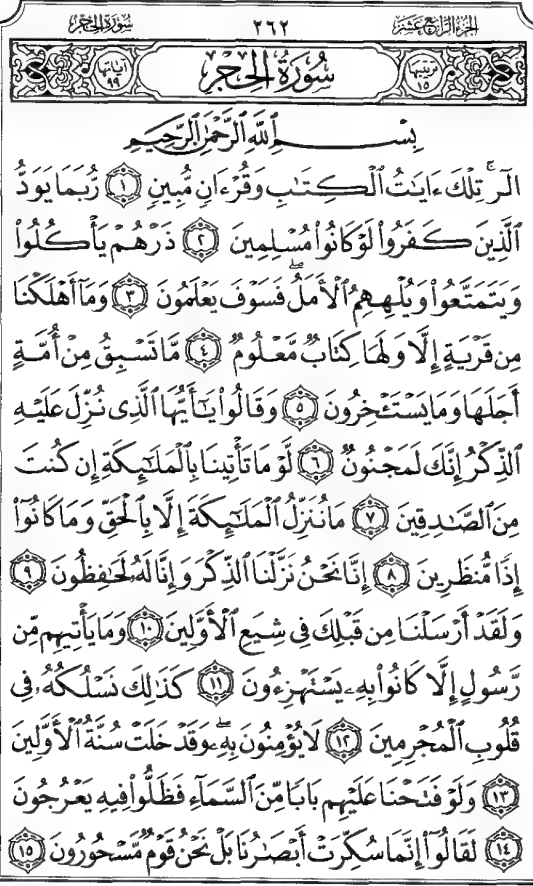 سُورَةُ الحِجْرِ ٢٦٢ الجُزءُ الرَّابِعُ عَشَرَ
آيَاتُهَا ٩٩ سُورَةُ الْحِجْرِ تَرتِيبُهَا ١٥
بِسْمِ ٱللَّهِ ٱلرَّحْمَٰنِ ٱلرَّحِيمِ
الٓرۚ تِلْكَ ءَايَٰتُ ٱلْكِتَٰبِ وَقُرْءَانٍ مُّبِينٍ ١ رُّبَمَا يَوَدُّ
ٱلَّذِينَ كَفَرُوا۟ لَوْ كَانُوا۟ مُسْلِمِينَ ٢ ذَرْهُمْ يَأْكُلُوا۟
وَيَتَمَتَّعُوا۟ وَيُلْهِهِمُ ٱلْأَمَلُۖ فَسَوْفَ يَعْلَمُونَ ٣ وَمَآ أَهْلَكْنَا
مِن قَرْيَةٍ إِلَّا وَلَهَا كِتَابٌ مَّعْلُومٌ ٤ مَّا تَسْبِقُ مِنْ أُمَّةٍ
أَجَلَهَا وَمَا يَسْتَـْٔخِرُونَ ٥ وَقَالُوا۟ يَٰٓأَيُّهَا ٱلَّذِى نُزِّلَ عَلَيْهِ
ٱلذِّكْرُ إِنَّكَ لَمَجْنُونٌ ٦ لَّوْ مَا تَأْتِينَا بِٱلْمَلَٰٓئِكَةِ إِن كُنتَ
مِنَ ٱلصَّٰدِقِينَ ٧ مَا نُنَزِّلُ ٱلْمَلَٰٓئِكَةَ إِلَّا بِٱلْحَقِّ وَمَا كَانُوٓا۟
إِذًا مُّنظَرِينَ ٨ إِنَّا نَحْنُ نَزَّلْنَا ٱلذِّكْرَ وَإِنَّا لَهُۥ لَحَٰفِظُونَ ٩
وَلَقَدْ أَرْسَلْنَا مِن قَبْلِكَ فِى شِيَعِ ٱلْأَوَّلِينَ ١٠ وَمَا يَأْتِيهِم مِّن
رَّسُولٍ إِلَّا كَانُوا۟ بِهِۦ يَسْتَهْزِءُونَ ١١ كَذَٰلِكَ نَسْلُكُهُۥ فِى
قُلُوبِ ٱلْمُجْرِمِينَ ١٢ لَا يُؤْمِنُونَ بِهِۦۖ وَقَدْ خَلَتْ سُنَّةُ ٱلْأَوَّلِينَ
١٣ وَلَوْ فَتَحْنَا عَلَيْهِم بَابًا مِّنَ ٱلسَّمَآءِ فَظَلُّوا۟ فِيهِ يَعْرُجُونَ
١٤ لَقَالُوٓا۟ إِنَّمَا سُكِّرَتْ أَبْصَٰرُنَا بَلْ نَحْنُ قَوْمٌ مَّسْحُورُونَ ١٥